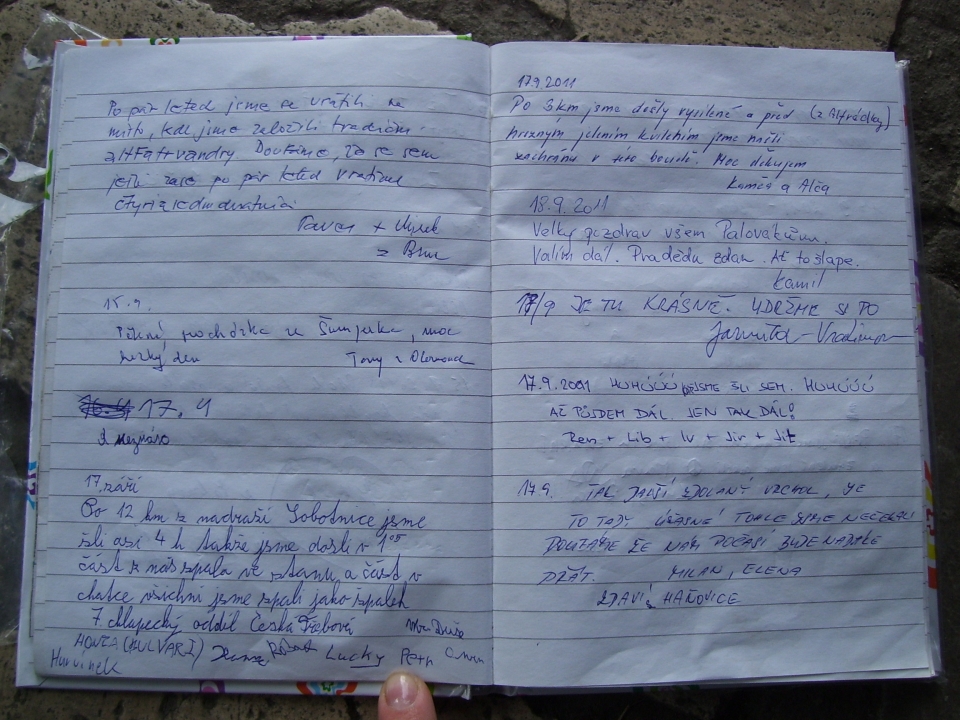 Po pár letech jsme se vrátili na
místo, kde jsme založili tradiční
vandry. Doufáme, že se sem
ještě zase po pár letech vrátíme
Pavel + Mirek
z Brna
15.9.
Pěkná pochůzka ze Šumperka, moc
hezký den Tony z Olomouce
17.9
17. září
Po 12 km z nadraží Sobotnice jsme
šli asi 4 h takže jsme došli v 1 05
část z nás spala ve stanu a část v
chatce všichni jsme spali jako špalek
7. chlapecký oddíl Česká Třebová
HONZA (KULVARI) Lucky Petr
Hurvínek
17.9.2011
Po 3km jsme došly vysílené a před (z Alfrédky)
hrozným jelením kvílením jsme našli
záchranu v této boudě. Moc děkujem
Kamča a Alča
18.9.2011
Velký pozdrav všem Palovákům.
Valím dál. Pradědu zdar. Ať to šlape.
Kamil
17/9 JE TU KRÁSNĚ. UDRŽME SI TO
Jarmila - Vladimír
17.9.2001 HUHÚÚÚ JSME ŠLI SEM. HUHÚÚÚ
AŤ PŮJDEM DÁL. JEN TAK DÁL!
Ren + Lib + Iv + Jir + Jit
17.9. TAK DALŠÍ ZDOLANÝ VRCHOL, JE
TO TADY ÚŽASNÉ TOHLE JSME NEČEKALI
DOUFÁME ŽE NÁM POČASÍ BUDE NADÁLE
PŘÁT. MILAN, ELENA
ZDRAVÍ Z HAŇOVICE